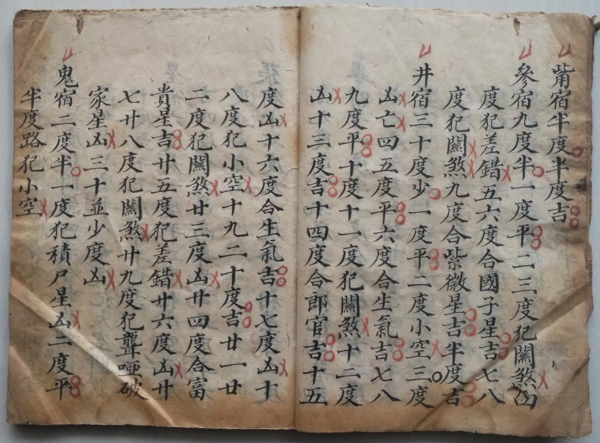 觜宿半度半度吉
參宿九度半一度平二三度犯關煞凶
度犯差錯五六度合國子星吉七八
度犯關煞九度合紫微星吉半度吉
井宿三十度少一度平二度小空三度
凶亡四五度平六度合生氣吉七八
九度平十度十一度犯關煞十二度
凶十三度吉十四度合郎官吉十五
度凶十六度合生氣吉十七度凶十
八度犯小空十九二十度吉廿一廿
二度犯關煞廿三度凶廿四度合富
貴星吉廿五度犯差錯廿六度凶廿
七廿八度犯關煞廿九度犯聾啞破
家星凶三十並少度凶
鬼宿二度半一度犯積尸星凶二度平
半度路犯小空